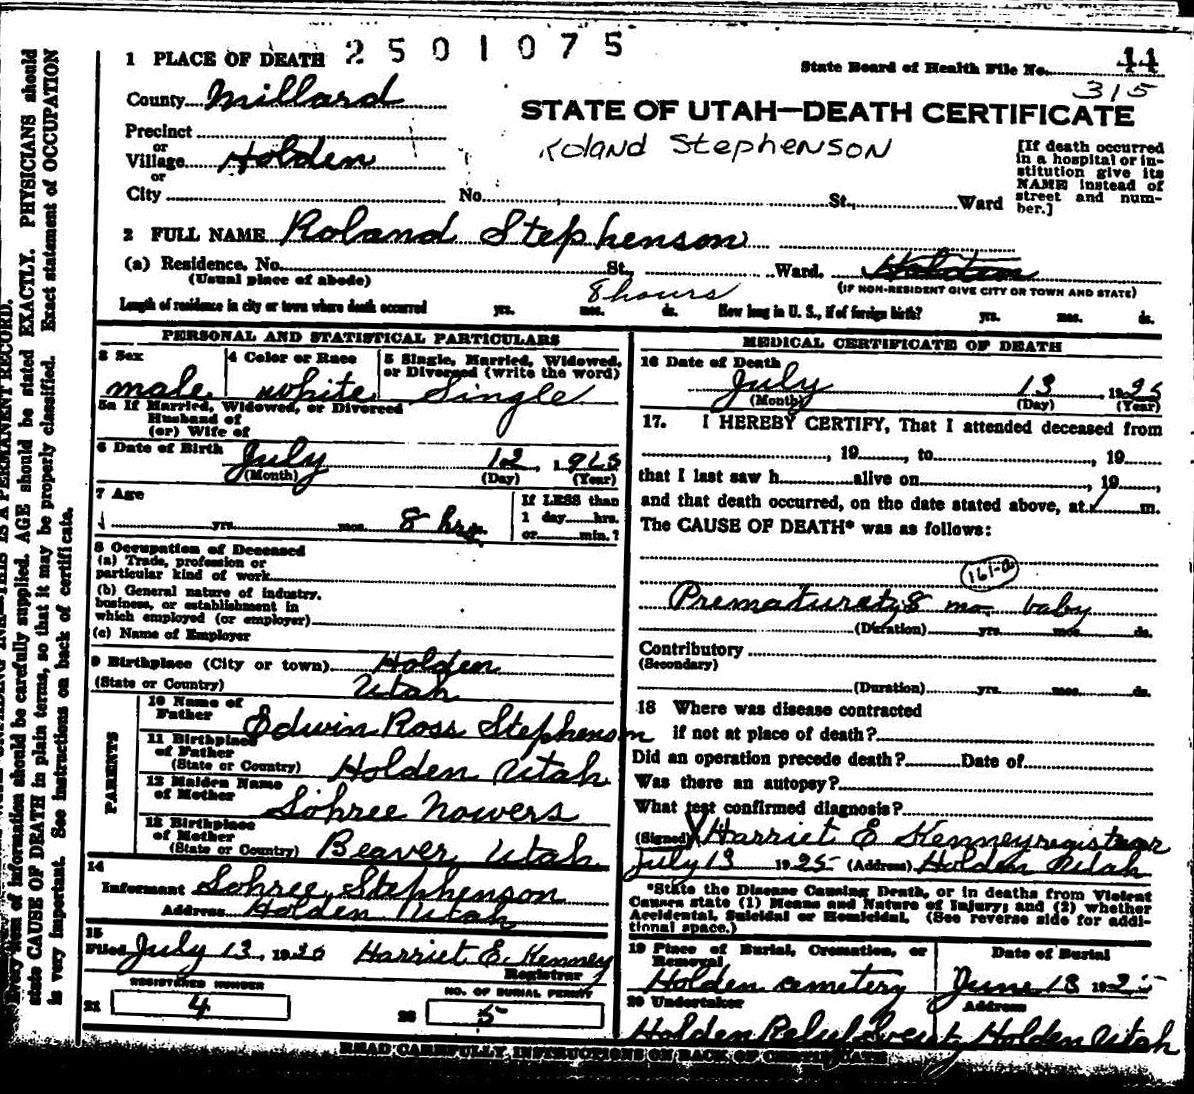 1 PLACE OF DEATH 2 5 0 1 0 7 5
State Board of Health File No. 44
315
County Millard
STATE OF UTAH—DEATH CERTIFICATE
Precinct
or
Village Holden
or
City No. St., Ward
Roland Stephenson
[If death occurred
in a hospital or in-
stitution give its
NAME instead of
street and num-
ber.]
2 FULL NAME Roland Stephenson
(a) Residence. No. St. Ward. Holden
(Usual place of abode) (IF NON-RESIDENT GIVE CITY OR TOWN AND STATE)
8 hours
Length of residence in city or town where death occurred yrs. mos. ds. How long in U. S., if of foreign birth? yrs. mos. ds.
PERSONAL AND STATISTICAL PARTICULARS
3 Sex 4 Color or Race 5 Single, Married, Widowed,
or Divorced (write the word)
male white Single
5a If Married, Widowed, or Divorced
Husband of
(or) Wife of
6 Date of Birth July 12, 1925
(Month) (Day) (Year)
7 Age If LESS than
yrs. mos. 8 hrs. 1 day hrs.
or min.?
8 Occupation of Deceased
(a) Trade, profession or
particular kind of work
(b) General nature of industry,
business, or establishment in
which employed (or employer)
(c) Name of Employer
9 Birthplace (City or town) Holden
(State or Country) Utah
PARENTS
10 Name of
Father Edwin Ross Stephenson
11 Birthplace
of Father
(State or Country) Holden Utah
12 Maiden Name
of Mother Sohree Nowers
13 Birthplace
of Mother
(State or Country) Beaver, Utah
14
Informant Sohree Stephenson
Address Holden Utah
15
Filed July 13, 19 Harriet E. Kenney
Registrar
REGISTERED NUMBER NO. OF BURIAL PERMIT
21 4 22 5
MEDICAL CERTIFICATE OF DEATH
16 Date of Death
July 13 1925
(Month) (Day) (Year)
17. I HEREBY CERTIFY, That I attended deceased from
, 19 , to , 19
that I last saw h alive on , 19 ,
and that death occurred, on the date stated above, at m.
The CAUSE OF DEATH* was as follows:
161-a
Prematurety 8 mo baby
(Duration) yrs. mos. ds.
Contributory
(Secondary)
(Duration) yrs. mos. ds.
18 Where was disease contracted
if not at place of death?
Did an operation precede death? Date of
Was there an autopsy?
What test confirmed diagnosis?
(Signed) X Harriet E Kenney registrar
July 13 1925 (Address) Holden Utah
*State the Disease Causing Death, or in deaths from Violent
Causes state (1) Means and Nature of Injury; and (2) whether
Accidental, Suicidal or Homicidal. (See reverse side for addi-
tional space.)
19 Place of Burial, Cremation, or Date of Burial
Removal
Holden cemetery June 13 1925
20 Undertaker Address
Holden Relief Society Holden Utah
READ CAREFULLY INSTRUCTIONS ON BACK OF CERTIFICATE
THIS IS A PERMANENT RECORD.
Every item of information should be carefully supplied. AGE should be stated EXACTLY. PHYSICIANS should
state CAUSE OF DEATH in plain terms, so that it may be properly classified. Exact statement of OCCUPATION
is very important. See instructions on back of certificate.